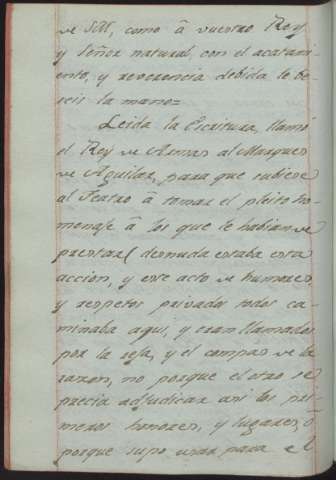 de SM, como â vuestro Rey
y Señor natural, con el acatami-
ento, y reverencia debida le be-
seis la mano=
Leida la Escritura, llamó
el Rey de Armas al Marques
de Aguilar, para que subiese
al Teatro â tomar el pleito ho-
menaje â los que le habian de
prestar( desnuda estaba esta
accion, y este acto de humores,
y respetos privados todos ca-
minaba aqui, y eran llamados
por la refa, y el compas de la
razon, no porque el otro se
precia adjudicar asi los pri-
meros honores, y lugares, ó
porque supo usar para el